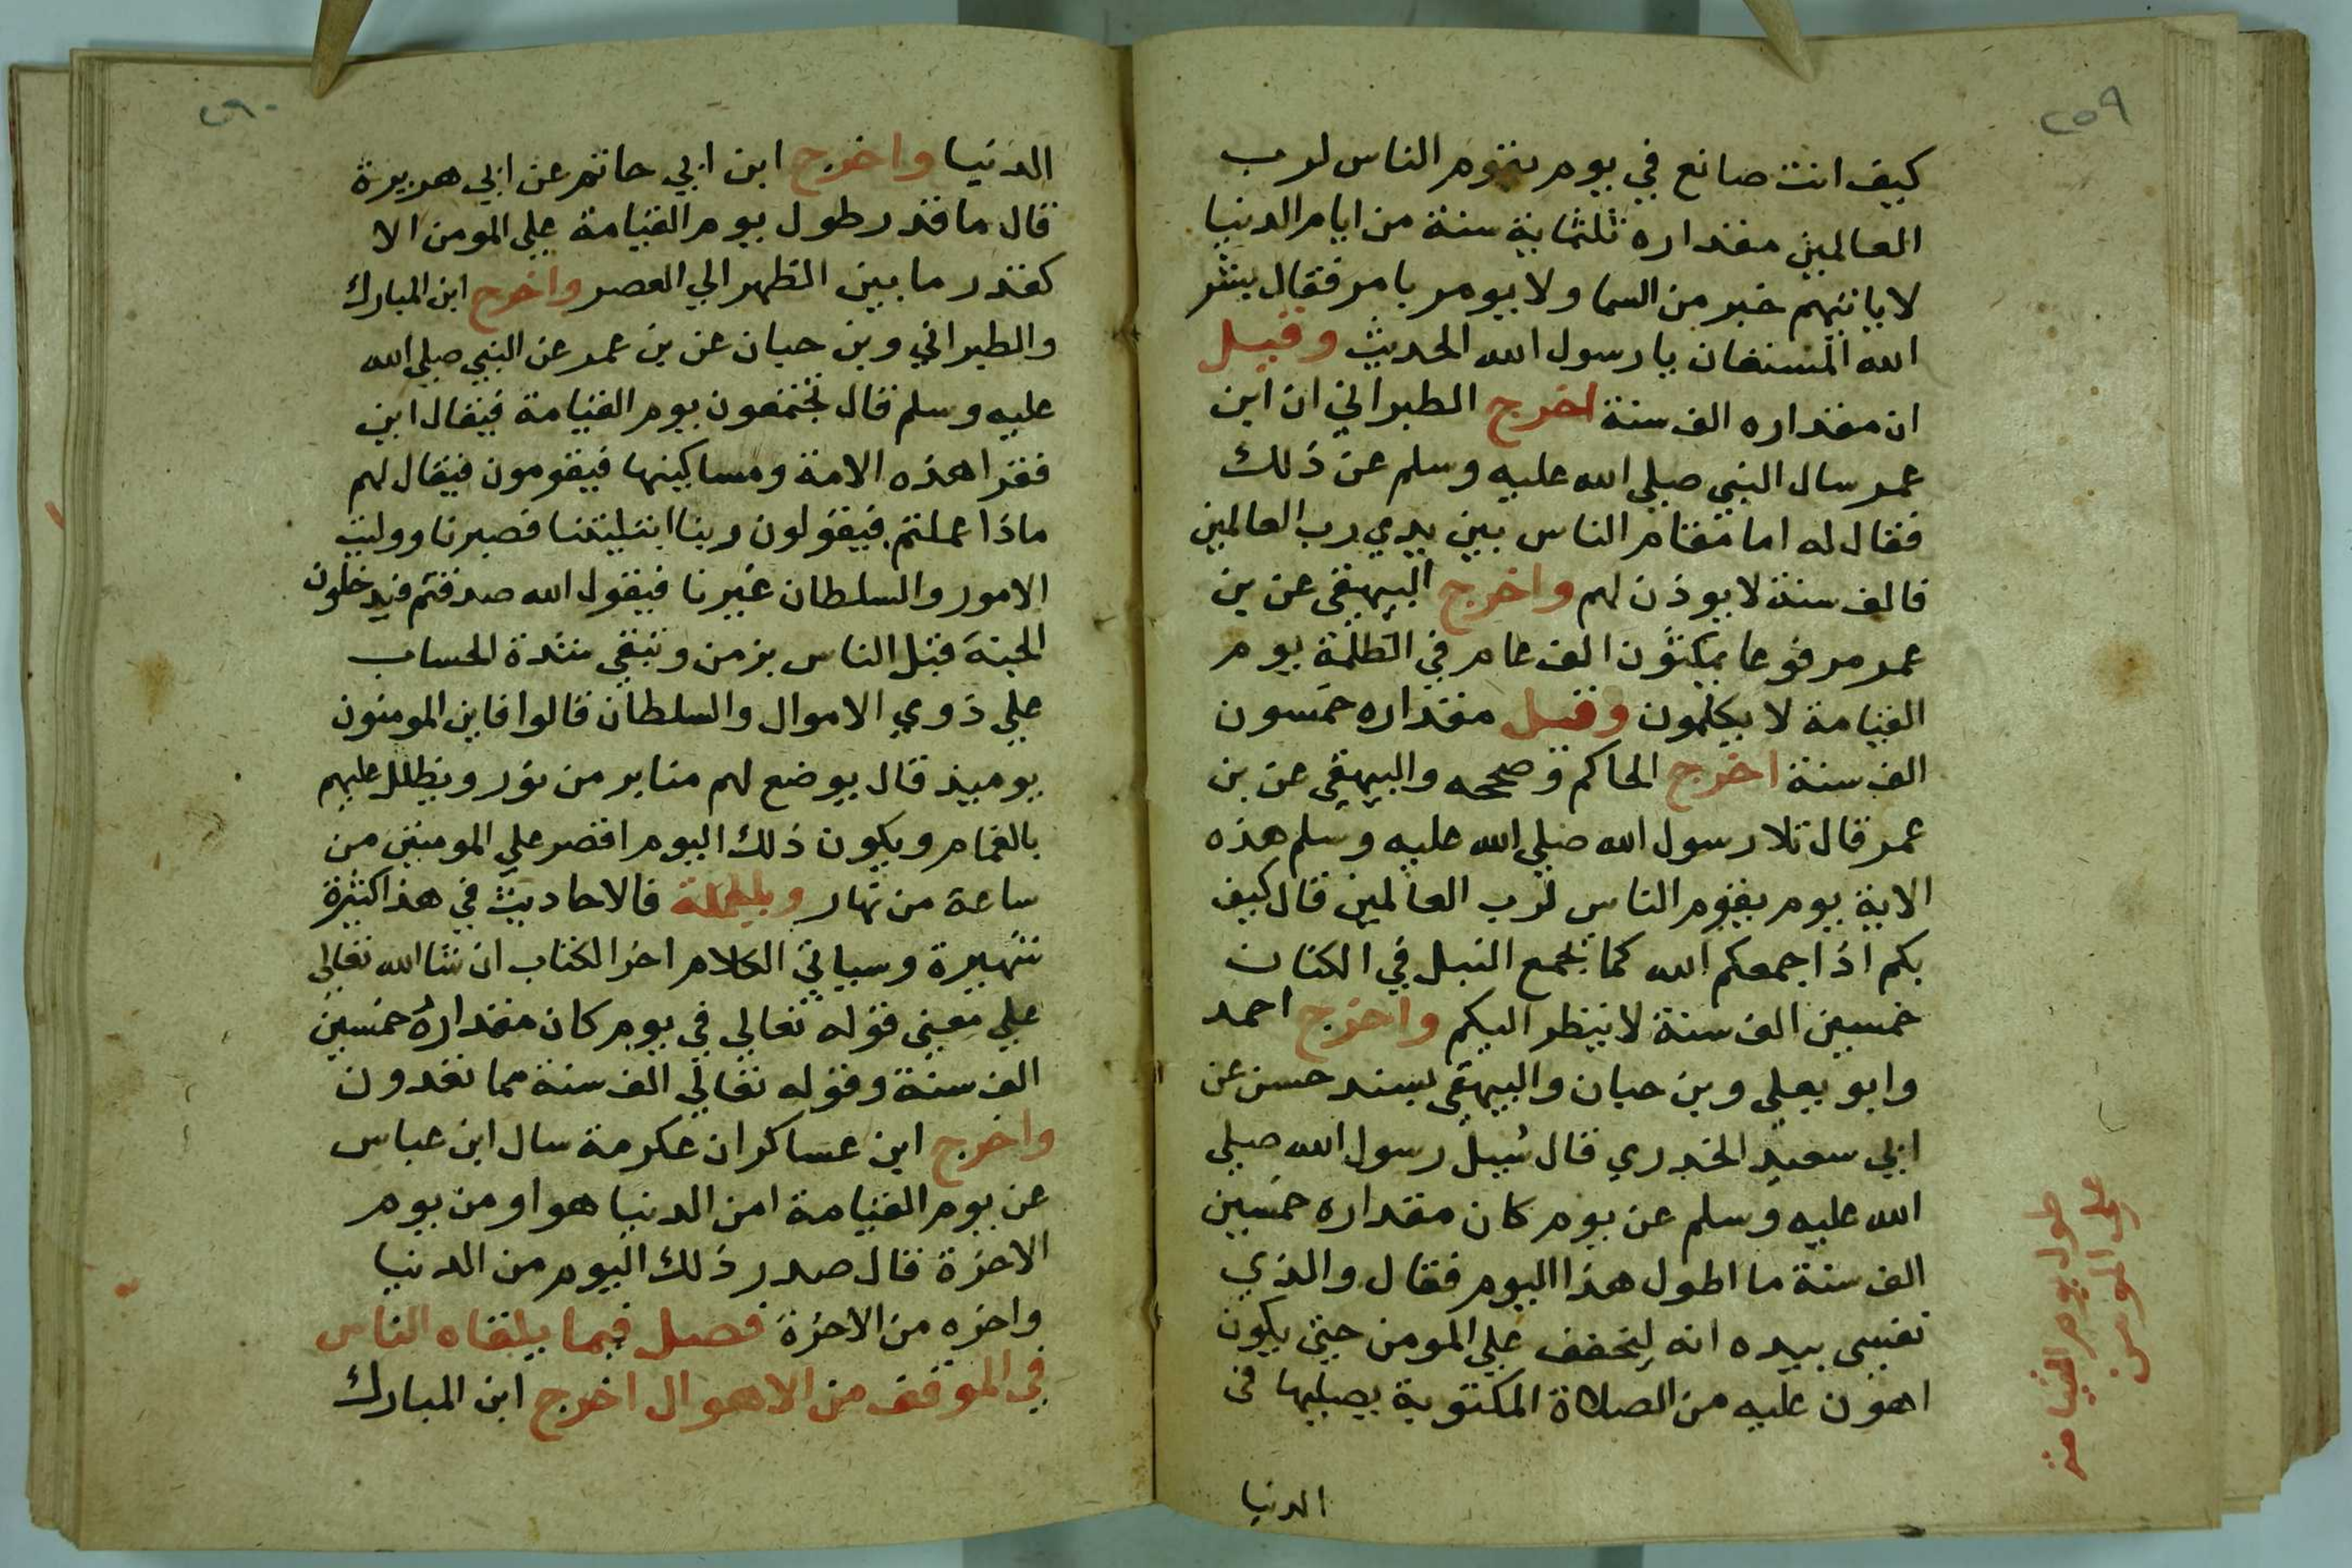 ٢٥٩
كيف انت صانع في يوم يقوم الناس لرب
العالمين مقداره ثلثماية سنة من ايام الدنيا
لا ياتيهم خبر من السما ولا يومر بامر فقال بشر
الله المستعان يا رسول الله الحديث وقيل
ان مقداره الف سنة اخرج الطبراني ان ابن
عمر سال النبي صلي الله عليه وسلم عن ذلك
فقال له اما مقام الناس بين يدي رب العالمين
فالف سنة لا يوذن لهم واخرج البيهقي عن بن
عمر مرفوعا يمكثون الف عام في الظلمة يوم
القيامة لا يكلمون وقيل مقداره خمسون
الف سنة اخرج الحاكم وصححه والبيهقي عن بن
عمر قال تلا رسول الله صلي الله عليه وسلم هذه
الاية يوم يقوم الناس لرب العالمين قال كيف
بكم اذا جمعكم الله كما يجمع النبل في الكنان
خمسين الف سنة لا ينظر اليكم واخرج احمد
وابو يعلي وبن حبان والبيهقي بسند حسن عن
ابي سعيد الخدري قال سيل رسول الله صلي
الله عليه وسلم عن يوم كان مقداره خمسين
الف سنة ما اطول هذا اليوم فقال والذي
نفسي بيده انه ليخفف علي المومن حتي يكون
اهون عليه من الصلاة المكتوبة يصليها في
الدنيا
طول يوم القيامة
على المومن
٢٦٠
الدنيا واخرج ابن ابي حاتم عن ابي هريرة
قال ما قدر طول يوم القيامة علي المومن الا
كقدر ما بين الظهر الي العصر واخرج ابن المبارك
والطبراني وبن حبان عن بن عمر عن النبي صلي الله
عليه وسلم قال تجتمعون يوم القيامة فيقال اين
فقرا هذه الامة ومساكينها فيقومون فيقال لهم
ماذا عملتم فيقولون ربنا ابتليتنا فصبرنا ووليت
الامور والسلطان غيرنا فيقول الله صدقتم فيدخلون
الجنة قبل الناس بزمن وتبقي شدة الحساب
علي ذوي الاموال والسلطان قالوا فاين المومنون
يوميذ قال يوضع لهم منابر من نور ويظلل عليهم
بالغمام ويكون ذلك اليوم اقصر علي المومنين من
ساعة من نهار وبالجملة فالاحاديث في هذا كثيرة
شهيرة وسياتي الكلام اخر الكتاب ان شا الله تعالي
علي معني قوله تعالي في يوم كان مقداره خمسين
الف سنة وقوله تعالي الف سنة مما تعدون
واخرج ابن عساكر ان عكرمة سال ابن عباس
عن يوم القيامة امن الدنيا هو او من يوم
الاخرة قال صدر ذلك اليوم من الدنيا
واخره من الاخرة فصل فيما يلقاه الناس
في الموقف من الاهوال اخرج ابن المبارك